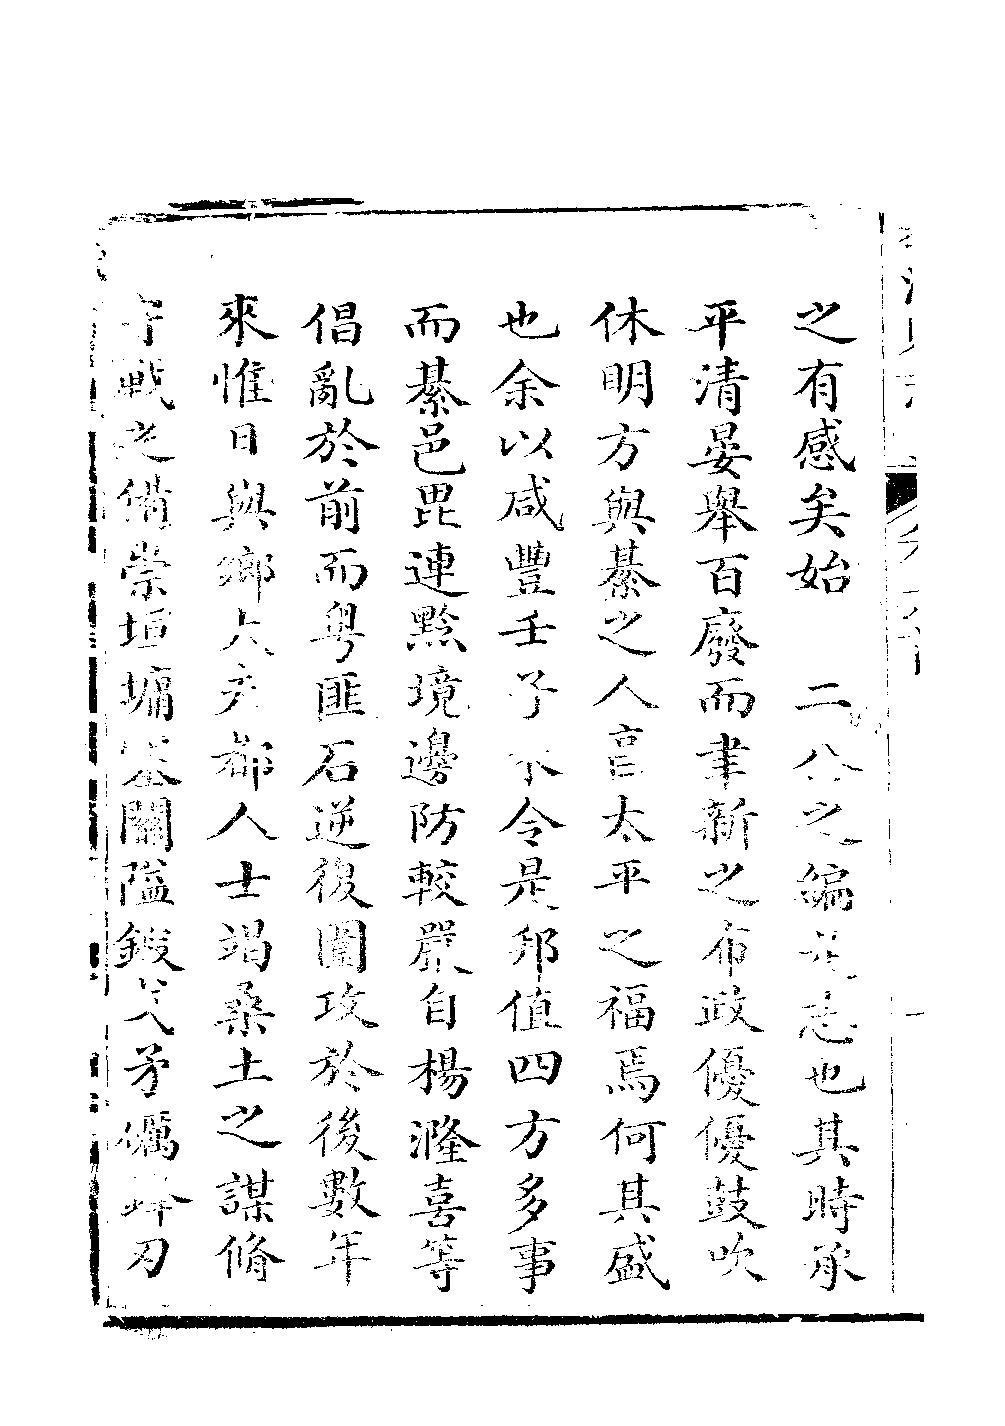 之有感矣始　二公之編是志也其時承
平清晏舉百廢而聿新之布政優優鼓吹
休明方與綦之人言太平之福焉何其盛
也余以咸豐壬子來令是邦值四方多事
而綦邑毘連黔境邊防較嚴自楊漋喜等
倡亂於前而粤匪石逆復圍攻於後數年
來惟日與鄉大夫都人士竭桑土之謀脩
守戰之備崇垣墉塞關隘鍛戈矛礪鋒刃